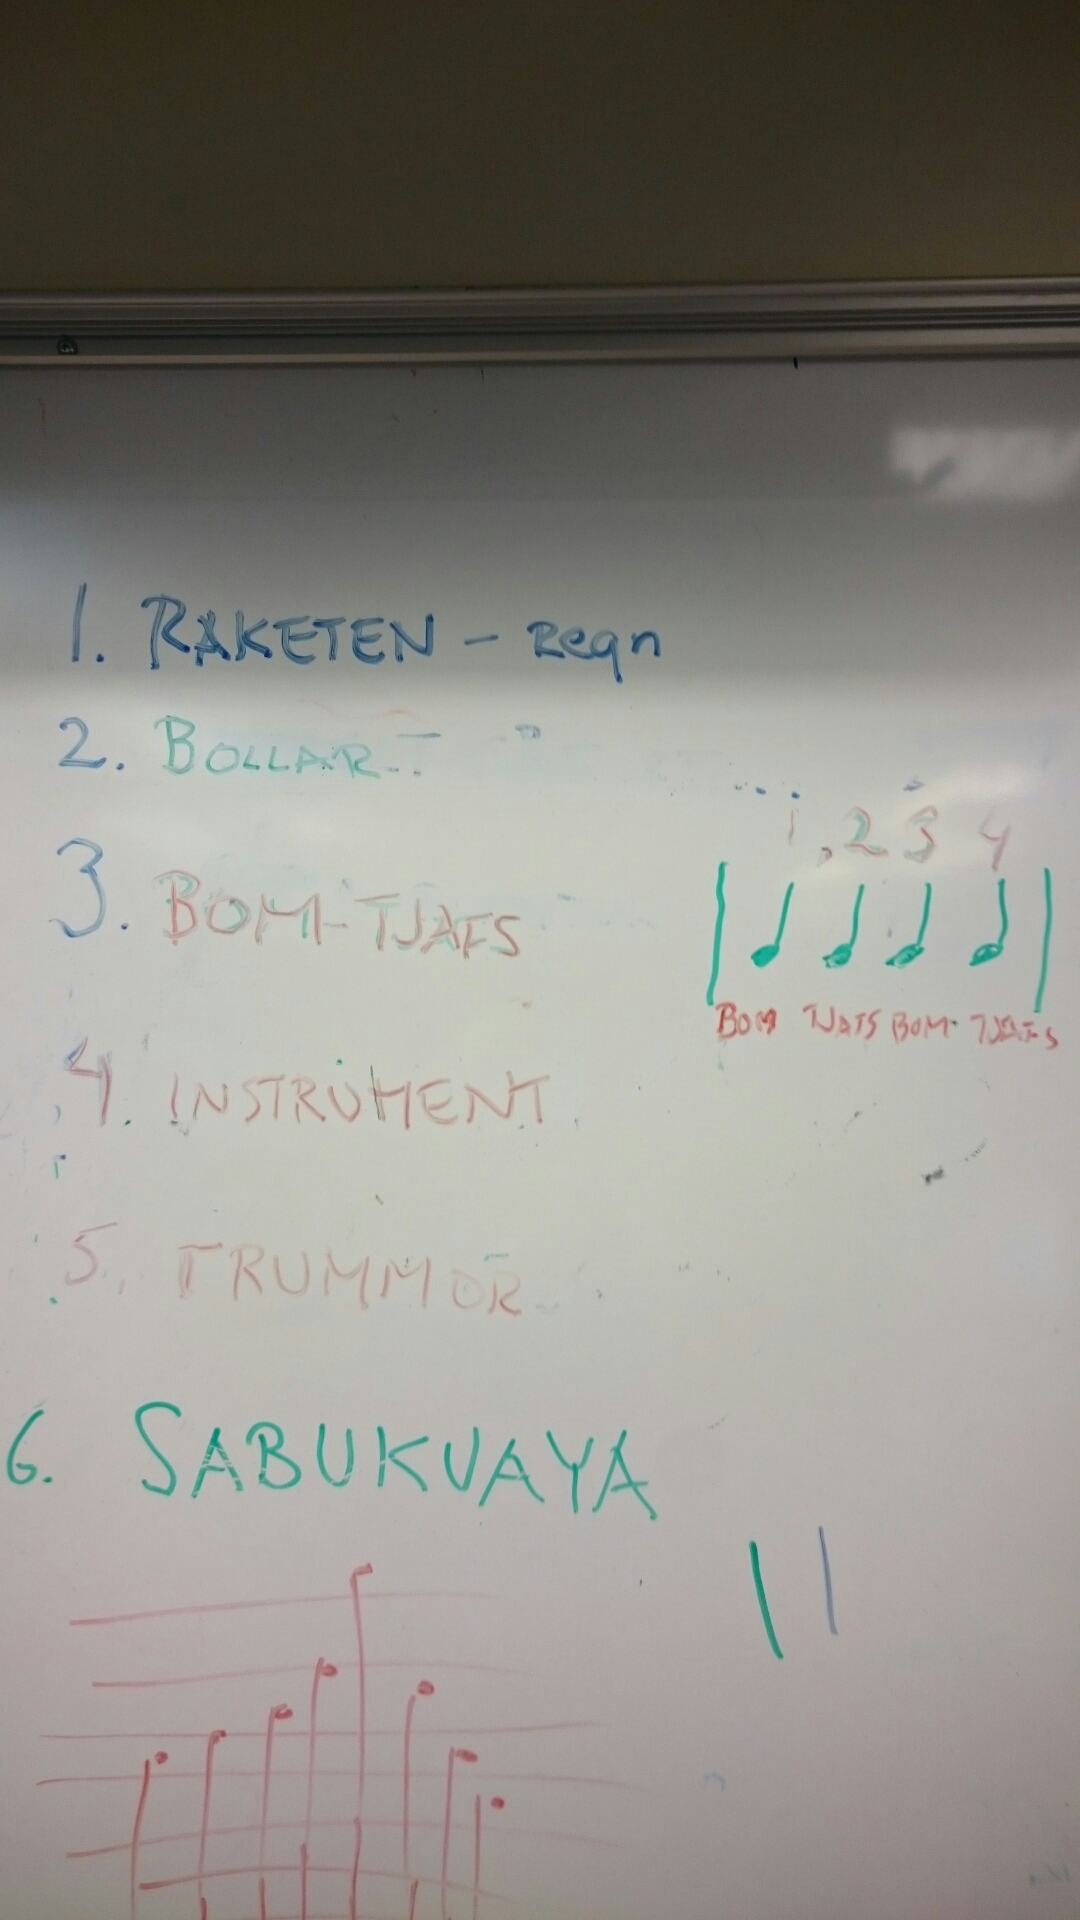 1. RAKETEN - Regn
2. BOLLAR
3. BOM-TJAFS
1, 2 3 4
BOM TJAFS BOM- TJAFS
4. INSTRUMENT
5. TRUMMOR
6. SABUKUAYA